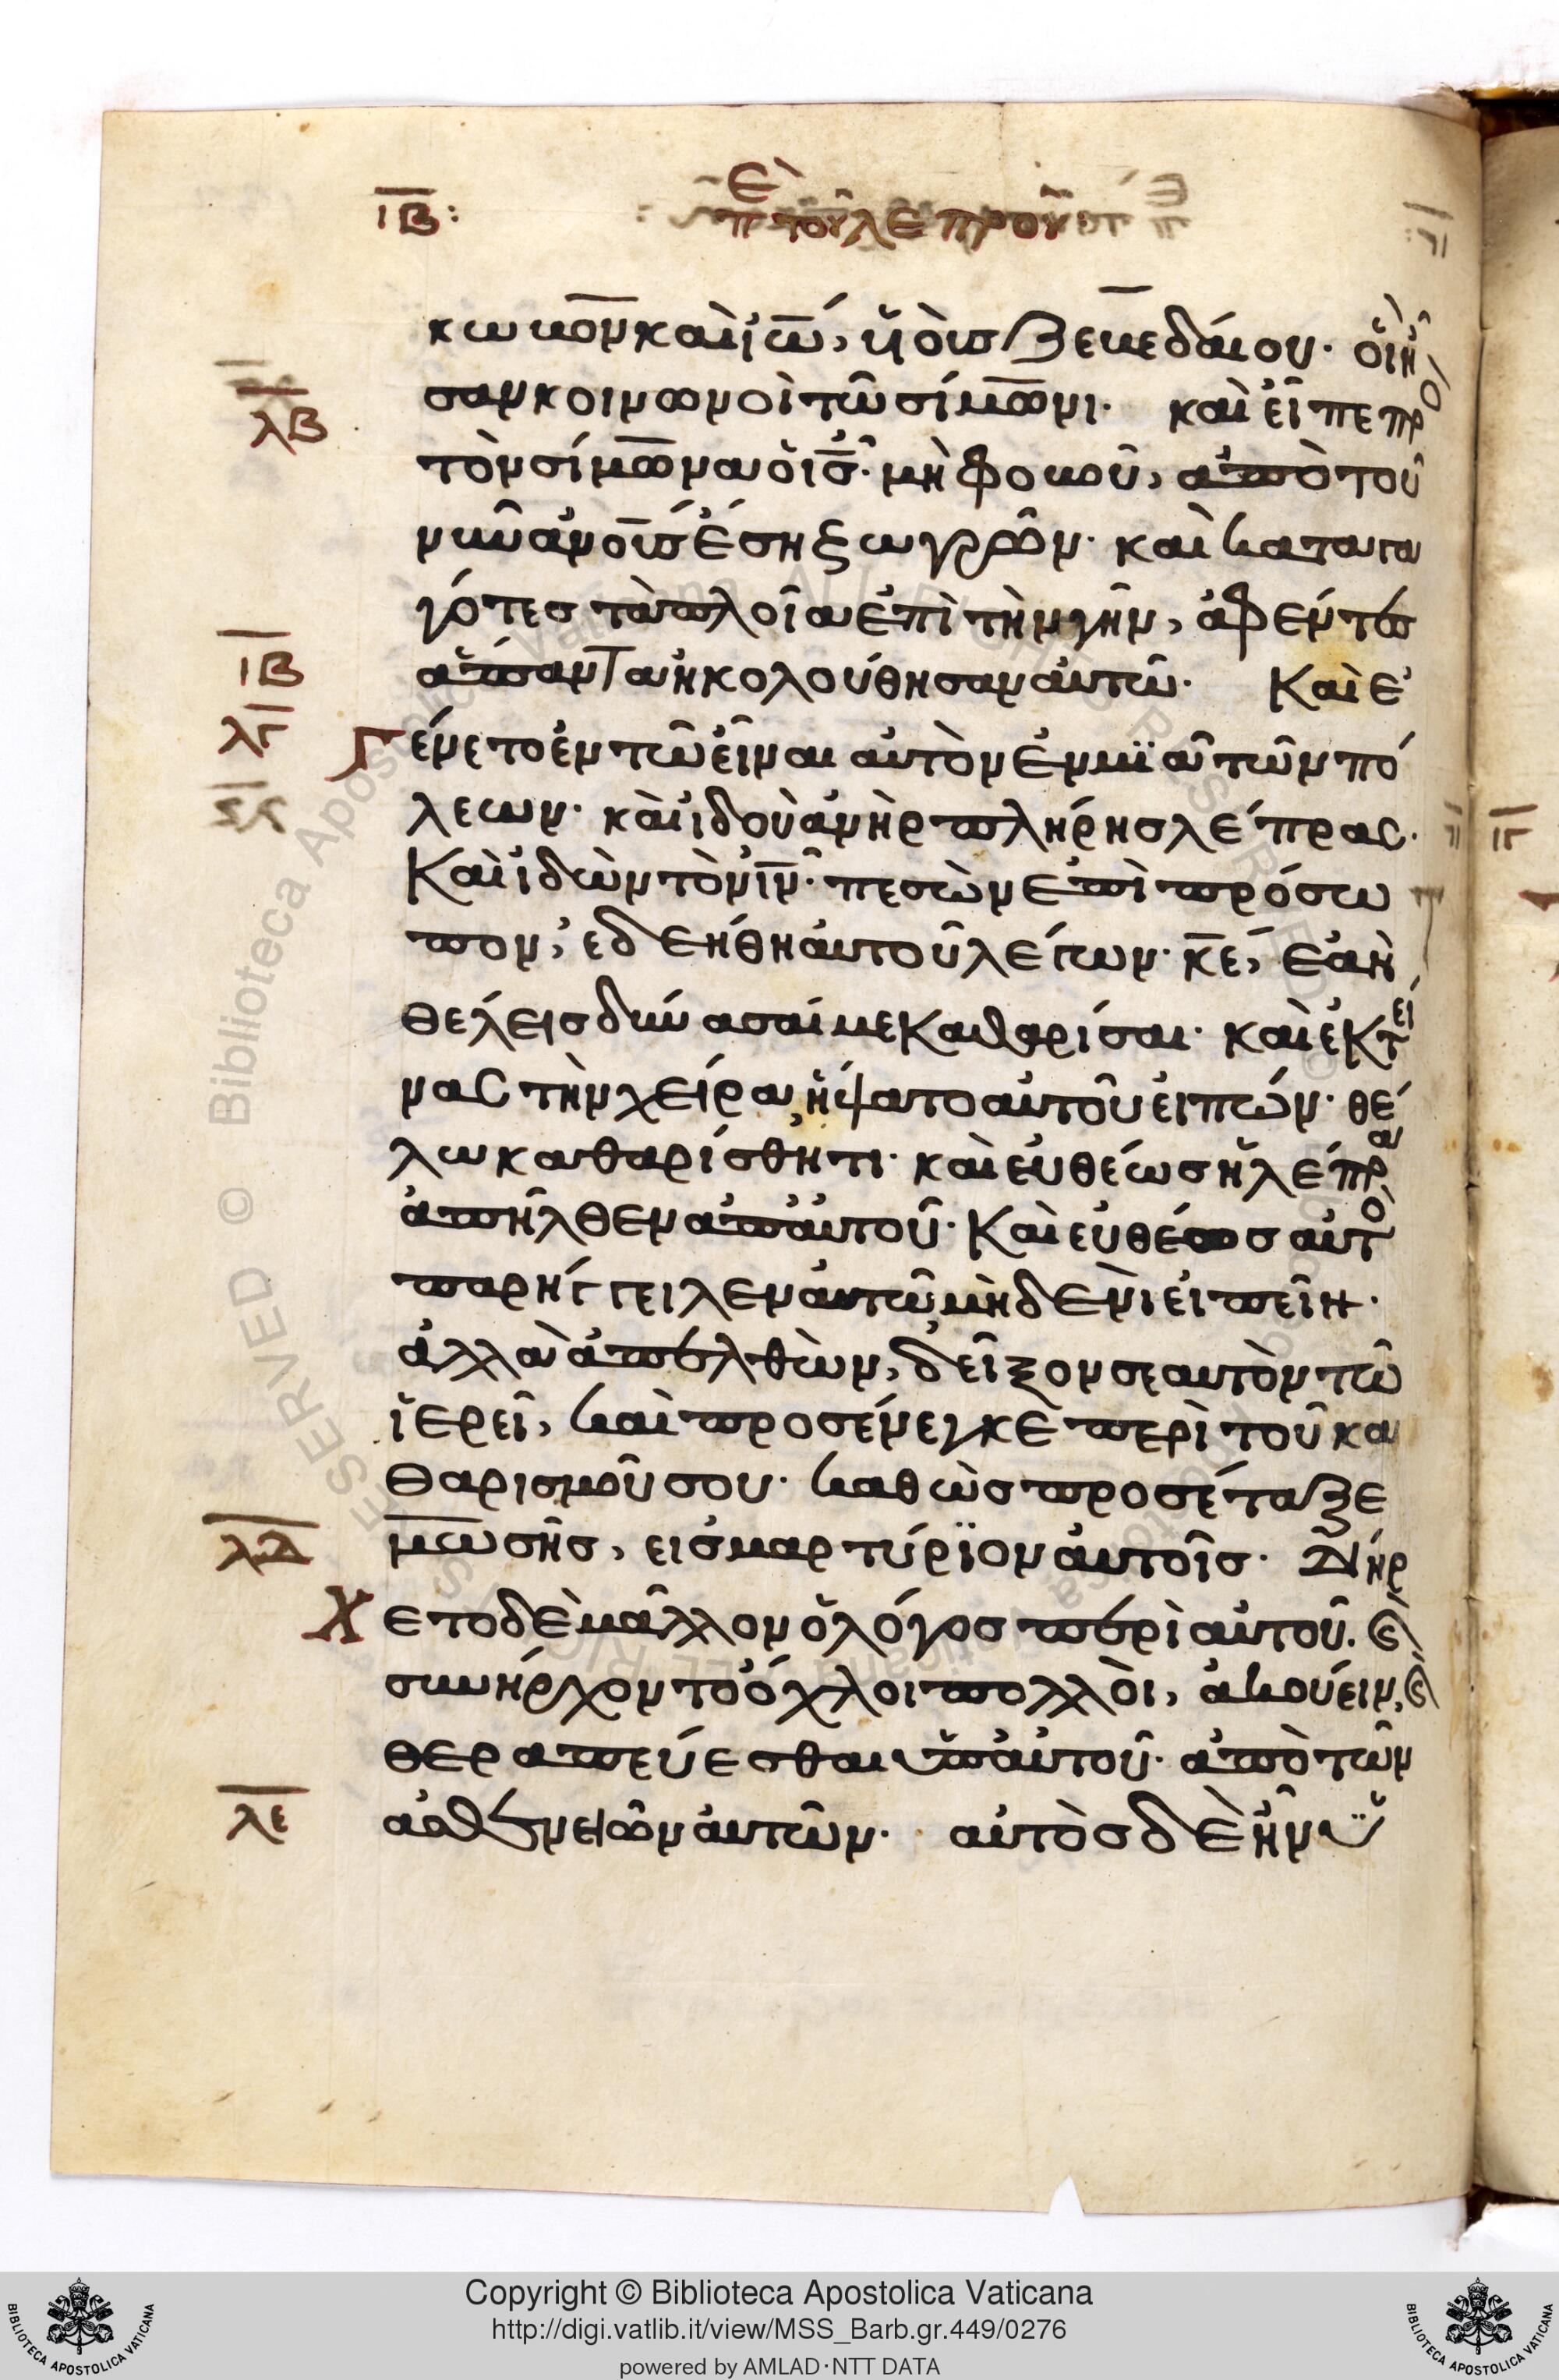 ΙΒ: πε τοῦ λεπροῦ
κωβον και ἰω̅, υἱοὺς Ζεβεδάιου· ὃι ἦ
λβ
σαν κοινωνοὶ τῶ σίμωνι· και εἶπε πρὸ
τὸν σίμωνα ὁ ι̅ς̅· μὴ φοβοῦ, ἀπὸ τοῦ
νῦν ἀνο̅υς ἔση ζωγρῶν· και καταγα
γότες τὰ πλοῖα ἐπὶ τὴν γῆν, ἀφέντες
ΙΒ
ἅπαντα ἠκολούθησαν αὐτῶ· Και ἐ
λγ
Γένετο ἐν τῶ εἶναι αὐτὸν ἐν μϊᾶ τῶν πό
λεων· και ἰδοὺ ἀνὴρ πλήρης λέπρας·
Και ἰδὼν τὸν ι̅ν̅· πεσὼν ἐπὶ πρόσω
πον, ἐδεήθη αὐτοῦ λέγων· κ̅ε̅, ἐὰν
θέλεις δύνασαί με Καθαρίσαι· και ἐκτεί
νας τὴν χεῖρα, ἥψατο αὐτοῦ εἰπών· θέ
λω καθαρίσθητι· και εὐθέως ἡ λέπρα
ἀπῆλθεν ἀπ' αὐτοῦ· Και εὐθέως αὐτὸ
παρήγγειλεν αὐτῶ μηδενὶ εἰπεῖν·
ἀλλὰ ἀπελθὼν, δεῖξον σεαυτὸν τῶ
ἱερεῖ, και προσένεγκε περὶ τοῦ κα
θαρισμοῦ σου· καθὼς προσέταξε
λδ
μωσῆς, εἰς μαρτύρϊον αὐτοῖς· Διήρ
Χετο δὲ μᾶλλον ὁ λόγος περὶ αὐτοῦ. ϗ
συνήρχοντο ὄχλοι πολλὸι, ἀκούειν, ϗ
θεραπεύεσθαι ὑπ' αὐτοῦ· ἀπὸ τῶν
λε
ἀσθενειῶν αὐτῶν· αὐτὸς δὲ ἦν ὑ
Copyright © Biblioteca Apostolica Vaticana
http://digi.vatlib.it/view/MSS_Barb.gr.449/0276
powered by AMLAD·NTT DATA